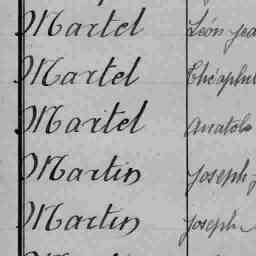 Martel Léon Jea
Martel Théophil
Martel Anatole
Martin Joseph
Martin Joseph